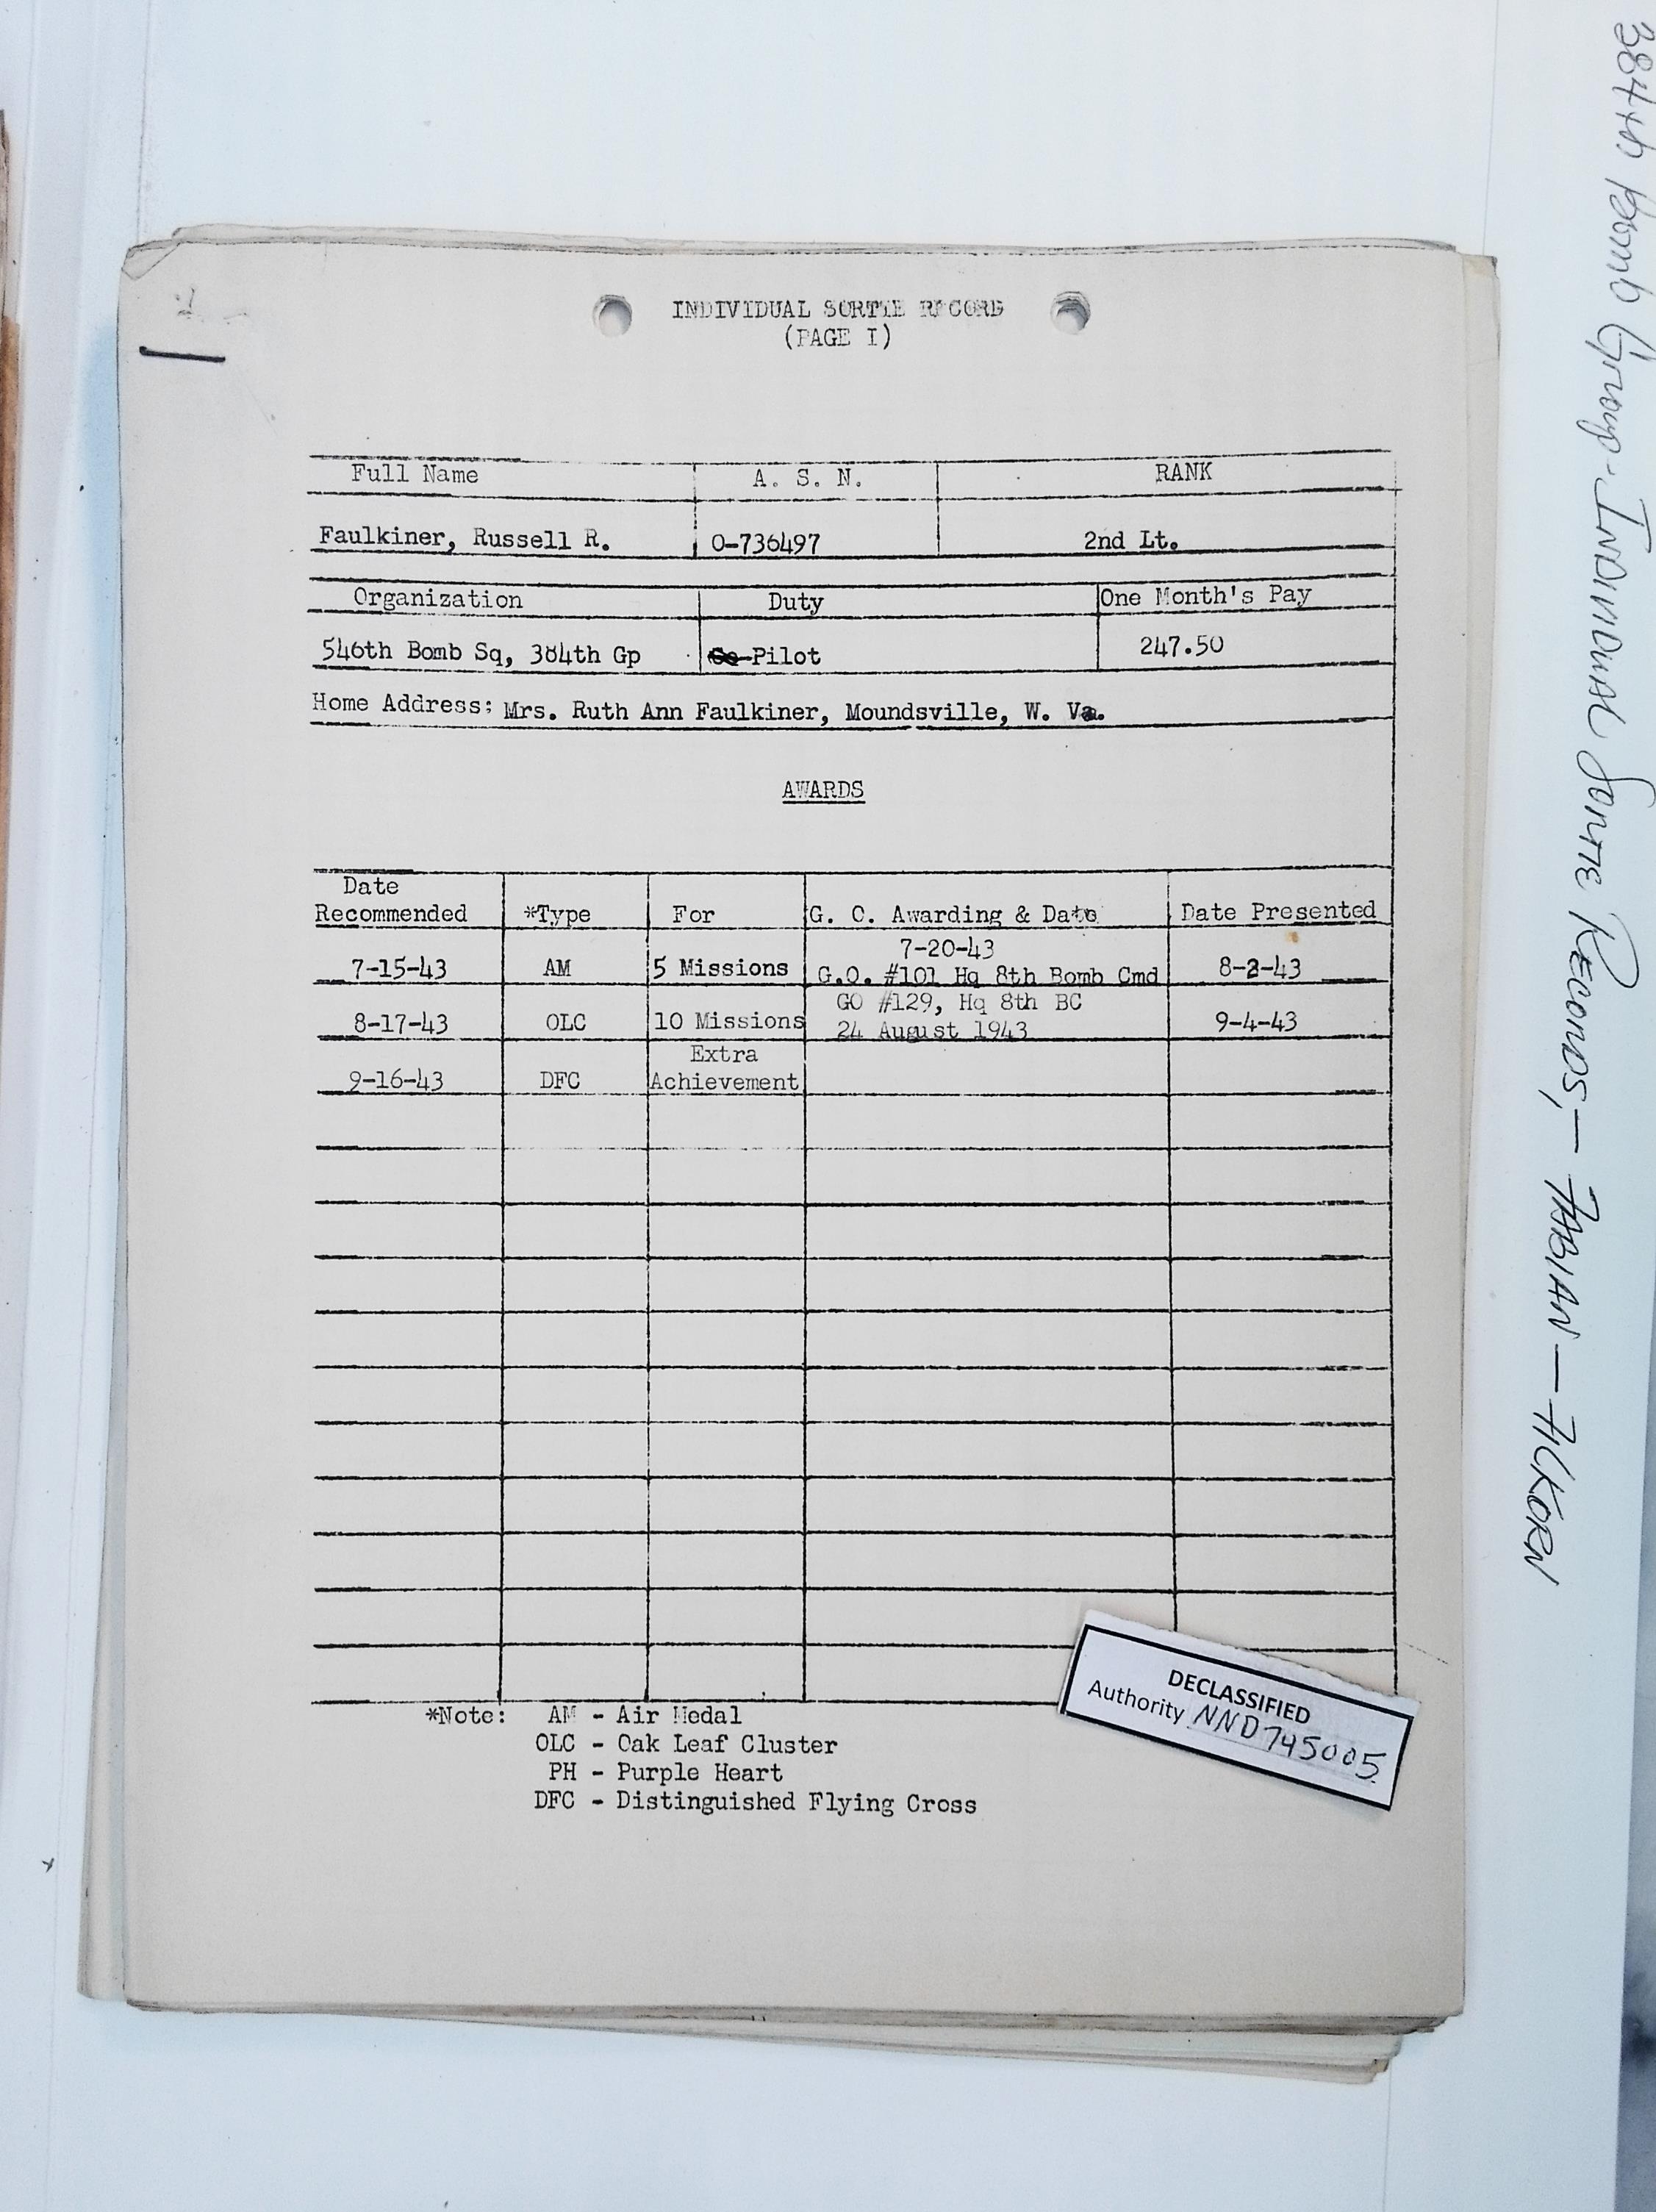 INDIVIDUAL SORTIE RECORD
(PAGE I)
Full Name A. S. N. RANK
Faulkiner, Russell R. O-736497 2nd Lt.
Organization Duty One Month's Pay
546th Bomb Sq, 384th Gp Co-Pilot 247.50
Home Address: Mrs. Ruth Ann Faulkiner, Moundsville, W. Va.
AWARDS
Date
Recommended *Type For G. O. Awarding & Date Date Presented
7-20-43
7-15-43 AM 5 Missions G.O. #101 Hq 8th Bomb Cmd 8-2-43
GO #129, Hq 8th BC
8-17-43 OLC 10 Missions 24 August 1943 9-4-43
Extra
9-16-43 DFC Achievement
*Note: AM - Air Medal
OLC - Oak Leaf Cluster
PH - Purple Heart
DFC - Distinguished Flying Cross
DECLASSIFIED
Authority NND745005
384th Bomb Group - INDIVIDUAL SORTIE RECORDS, - FABIAN - FLKORN